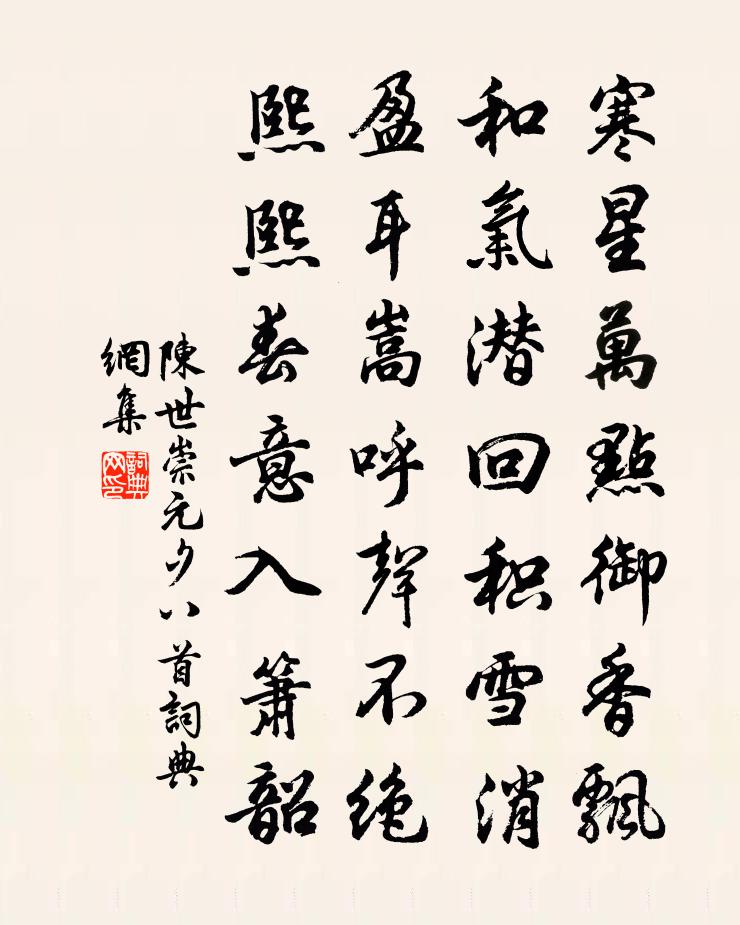 寒星萬點御香飄
和氣潜回积雪消
盈耳嵩呼聲不绝
熙熙春意入箫韶
陳世崇元夕八首詞典
網集
詞典
网印